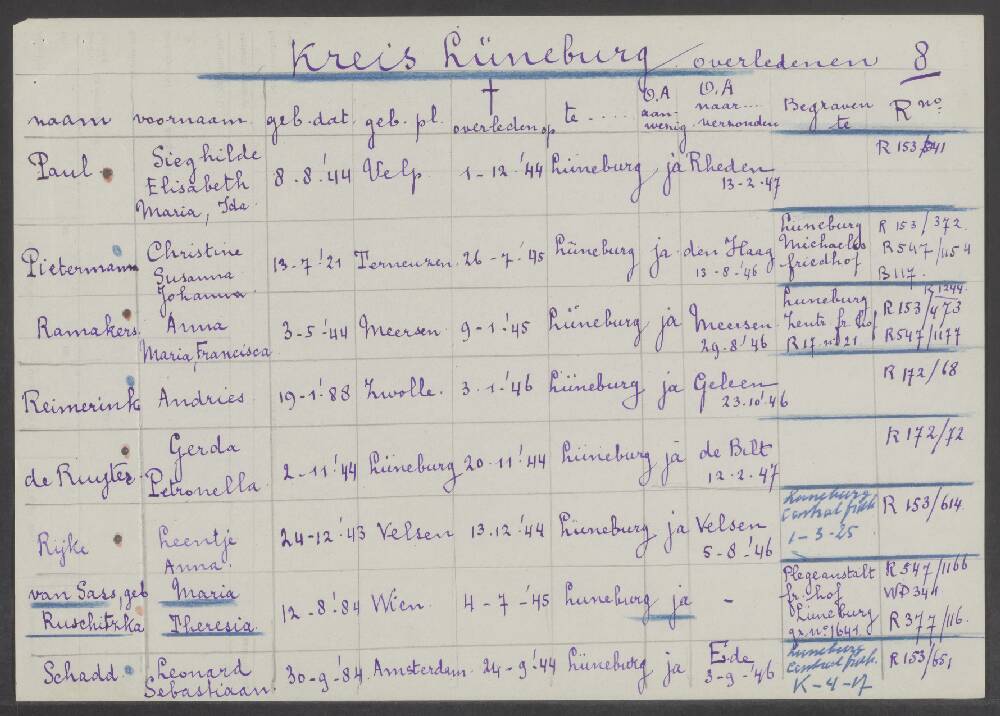 Kreis Lüneburg overledenen 8
naam voornaam geb. dat. geb. pl. † overleden op te ..... O.A aan- wenig O.A naar.... verzonden Begraven te R no.
Paul Sieghilde Elisabeth Maria, Ida 8-8-'44 Velp 1-12-'44 Lüneburg ja Rheden 13-2-'47 R 153/541
Pietermann Christine Susanna Johanna 13-7-'21 Terneuzen 26-7-'45 Lüneburg ja den Haag 13-8-'46 Lüneburg Michaelis friedhof R 153/372 R547/1154 B117.
Ramakers Anna Maria, Francisca 3-5-'44 Meersen 9-1-'45 Lüneburg ja Meersen 29-8-'46 Luneburg Zentr. fr. hof R 17. no 21 R 1244 R153/473 R547/1177
Reimerink Andries 19-1-'88 Zwolle 3-1-'46 Lüneburg ja Geleen 23-10-'46 R 172/68
de Ruyter Gerda Petronella 2-11-'44 Lüneburg 20-11-'44 Lüneburg ja de Bilt 12-2-'47 R 172/72
Rijke Leentje Anna 24-12-'43 Velsen 13-12-'44 Lüneburg ja Velsen 5-8-'46 Luneburg Central 1-3-25 R 153/614.
van Sass, geb Ruschitzka Maria Theresia 12-8-'84 Wien 4-7-'45 Luneburg ja - Plegeanstalt fr. hof Lüneburg gr. no. 1641. R547/1166 WP 341 R377/116.
Schadd Leonard Sebastiaan 30-9-'84 Amsterdam 24-9-'44 Lüneburg ja Ede 3-9-'46 Luneburg Central K-4-17 R153/651